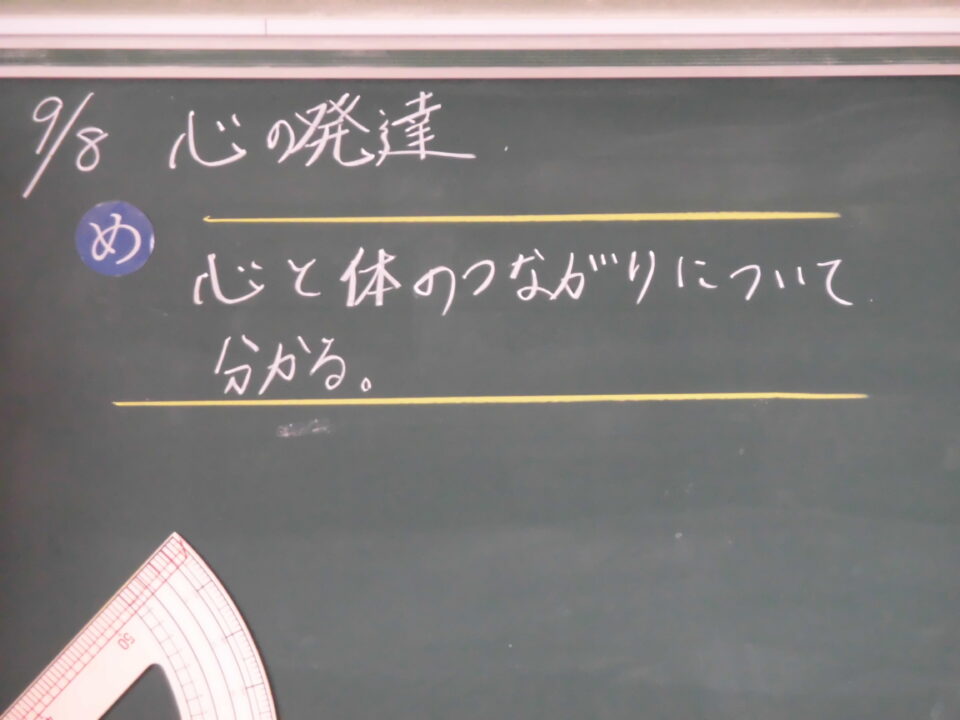 9/8 心の発達
め
心と体のつながりについて
分かる。
50